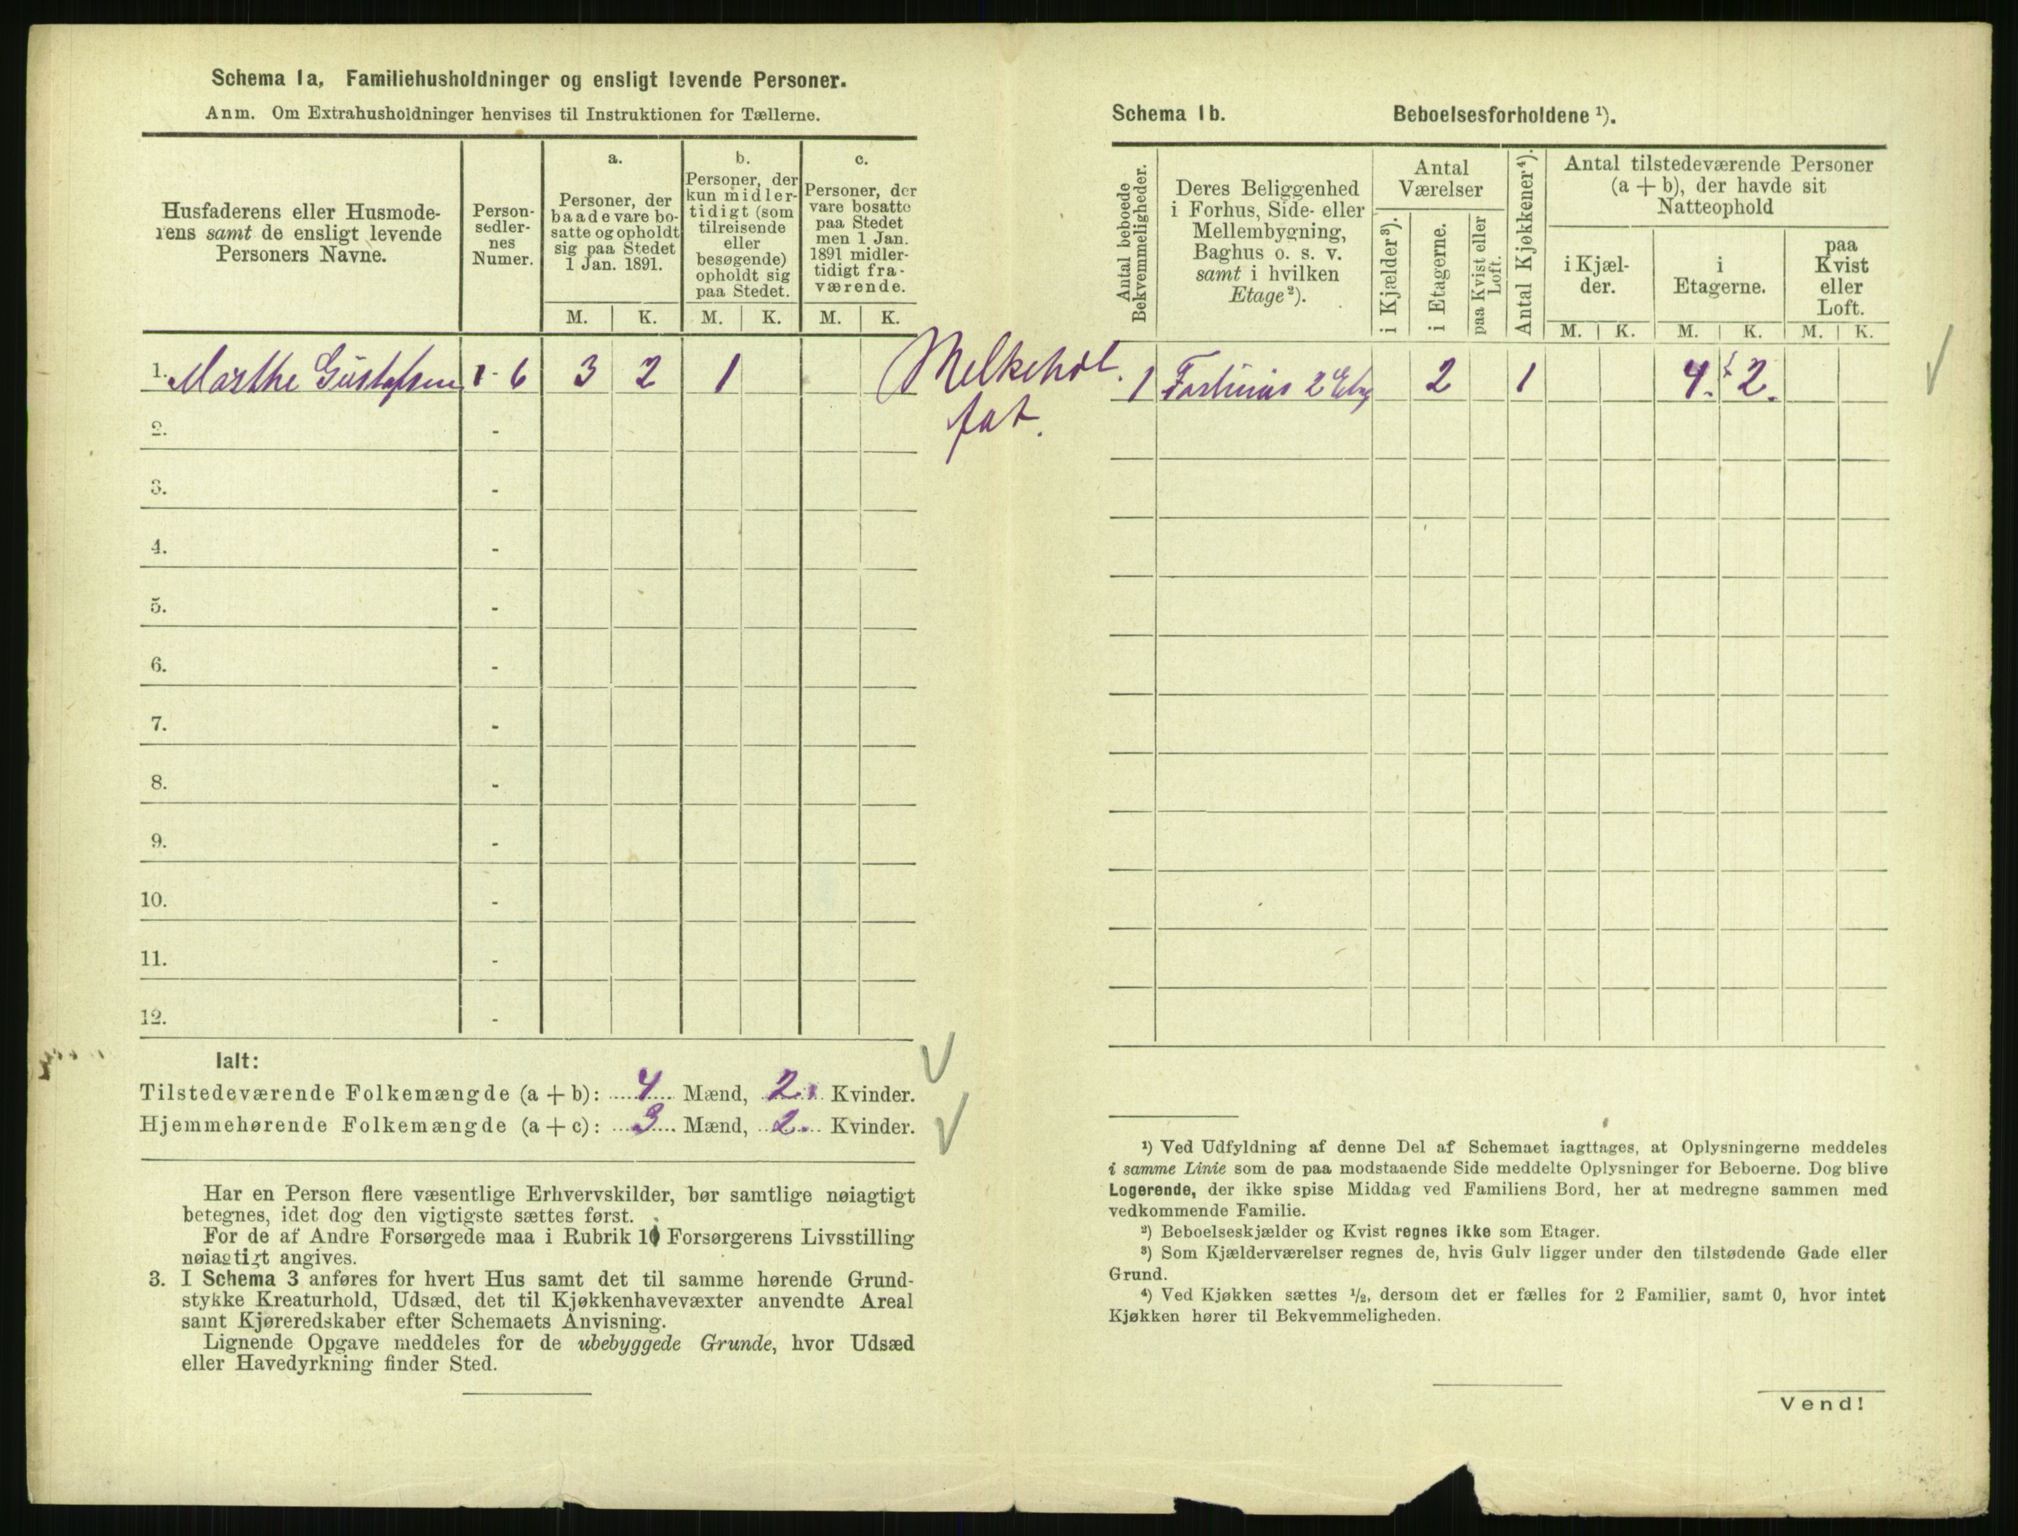 Schema 1a, Familiehusholdninger og ensligt levende Personer.
Anm. Om Extrahusholdninger henvises til Instruktionen for Tællerne.
Husfaderens eller Husmode-
rens samt de ensligt levende
Personers Navne.
Person-
sedler-
nes
Numer.
a.
Personer, der
baade vare bo-
satte og opholdt
sig paa Stedet
1 Jan. 1891.
b.
Personer, der
kun midler-
tidigt (som
tilreisende
eller
besøgende)
opholdt sig
paa Stedet.
c.
Personer, der
vare bosatte
paa Stedet
men 1 Jan.
1891 midler-
tidigt fra-
værende.
M. K. M. K. M. K.
1. Marthe Gustafsen 1-6 3 2 1
Melkehol
fat.
2. -
3. -
4. -
5. -
6. -
7. -
8. -
9. -
10. -
11. -
12. -
Ialt:
Tilstedeværende Folkemængde (a + b): 4 Mænd, 2 Kvinder.
Hjemmehørende Folkemængde (a + c): 3 Mænd, 2. Kvinder.
Har en Person flere væsentlige Erhvervskilder, bør samtlige nøiagtigt
betegnes, idet dog den vigtigste sættes først.
For de af Andre Forsørgede maa i Rubrik 10 Forsørgerens Livsstilling
nøiagtigt angives.
3. I Schema 3 anføres for hvert Hus samt det til samme hørende Grund-
stykke Kreaturhold, Udsæd, det til Kjøkkenhavevæxter anvendte Areal
samt Kjøreredskaber efter Schemaets Anvisning.
Lignende Opgave meddeles for de ubebyggede Grunde, hvor Udsæd
eller Havedyrkning finder Sted.
Schema 1b. Beboelsesforholdene ¹).
Antal beboede
Bekvemmeligheder.
Deres Beliggenhed
i Forhus, Side- eller
Mellembygning,
Baghus o. s. v.
samt i hvilken
Etage²).
Antal
Værelser
i Kjælder³).
i Etagerne.
paa Kvist eller
Loft.
Antal Kjøkkener⁴).
Antal tilstedeværende Personer
(a + b), der havde sit
Natteophold
i Kjæl-
der.
i
Etagerne.
paa
Kvist
eller
Loft.
M. K. M. K. M. K.
1 2 1 4. 2.
¹) Ved Udfyldning af denne Del af Schemaet iagttages, at Oplysningerne meddeles
i samme Linie som de paa modstaaende Side meddelte Oplysninger for Beboerne. Dog blive
Logerende, der ikke spise Middag ved Familiens Bord, her at medregne sammen med
vedkommende Familie.
²) Beboelseskjælder og Kvist regnes ikke som Etager.
³) Som Kjælderværelser regnes de, hvis Gulv ligger under den tilstødende Gade eller
Grund.
⁴) Ved Kjøkken sættes ½, dersom det er fælles for 2 Familier, samt 0, hvor intet
Kjøkken hører til Bekvemmeligheden.
Vend!